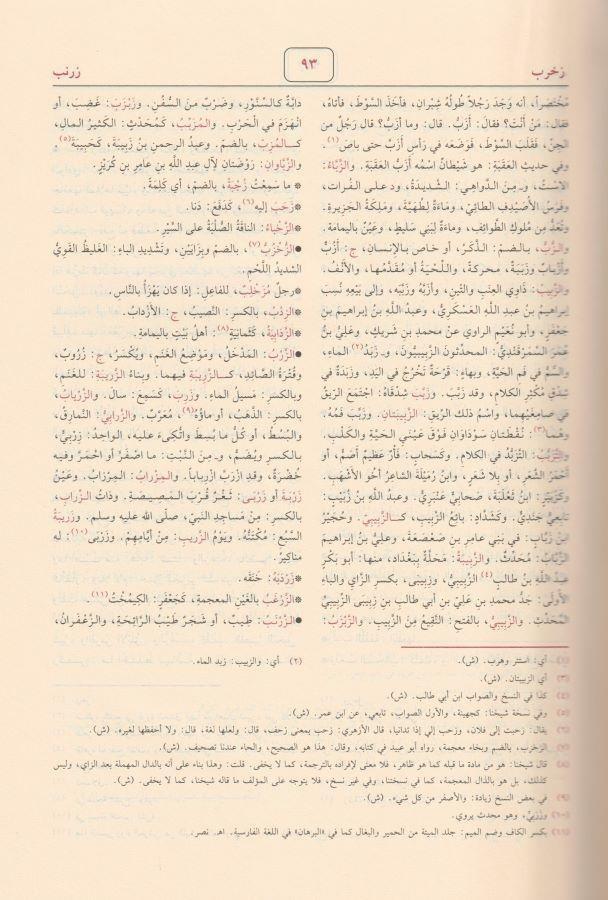 زخرب
٩٣
زرنب
مُخْتَصراً، أنه وَجَدَ رَجُلاً طُولُهُ شِبْرَانِ، فأخَذَ السَّوْطَ، فأتاهُ،
فقال: مَنْ أنْتَ؟ فقالَ: أزَبُّ. قال: وما أزَبُّ؟ قال: رَجُلٌ من
الجِنِّ، فَقَلَبَ السَّوْطَ، فَوَضَعَه في رَأْسِ أزَبَّ حتى باصَ(١).
وفي حديثِ العَقَبَةِ: هو شَيْطانٌ اسْمُه أزَبُّ العَقَبَةِ. والزَّبَّاءُ:
الاسْتُ، ـ ومن الدَّواهِي: الشديدةُ، ود على الفُرات،
وفَرَسُ الأُصَيْدِفِ الطائيِّ، وماءَةٌ لِطُهَيَّةَ، ومَلِكَةُ الجَزيرةِ،
وتُعَدُّ مِن مُلُوكِ الطَّوائِفِ، وماءَةٌ لبَني سَلِيطٍ، وعَيْنٌ باليمامة.
والزُّبُّ، بالضم: الذَّكَرُ، أو خاصٌ بالإنسانِ، ج: أزُبٌّ
وأزْبابٌ وزَبَبَةٌ، محركةً، واللِّحْيَةُ أو مُقَدَّمُها، والأنْفُ.
والزَّبيبُ: ذَاوِي العِنَبِ والتِّينِ، وأزَبَّهُ وزَبَّبَه، وإلى بَيْعِه نُسِبَ
إبراهيمُ بنُ عبدِ اللَّهِ العَسْكَرِيُّ، وعبدُ اللَّهِ بنُ إبراهيمَ بنِ
جَعْفَرٍ، وأبو نُعَيْمٍ الراوي عن محمدِ بنِ شريكٍ، وعَلِيُّ بنُ
عُمَرَ السَّمَرْقَنْدِيُّ: المحدِّثونَ الزَّبيبيُّونَ، ـ وزَبَدُ(٢) الماءِ،
والسَّمُّ في فَمِ الحَيَّةِ، وبهاءٍ: قَرْحَةٌ تَخْرُجُ في اليَدِ، وزَبَدَةٌ في
شِدْقِ مُكْثِرِ الكلامِ، وقد زَبَّبَ. وزَبَّبَ شِدْقاهُ: اجْتَمَعَ الرّيقُ
في صامِغَيْهِما، واسْمُ ذلك الرِّيقِ: الزَّبيبَتانِ. وزَبَّبَ فَمُهُ.
وهُما(٣): نُقْطَتانِ سَوْداوانِ فَوْقَ عَيْنَي الحَيَّةِ والكَلْبِ.
والتَّزَبُّبُ: التَّزَيُّدُ في الكلامِ. وكسَحابٍ: فَأْرٌ عظيمٌ أصَمُّ، أو
أحْمَرُ الشَّعَرِ، أو بِلا شَعَرٍ، وابنُ رُمَيْلَةَ الشاعِرُ أخُو الأشْهَبِ.
وكزُبَيْرٍ: ابنُ ثَعْلَبَةَ، صَحابِيٌّ عَنْبَرِيٌّ. وعبدُ اللَّهِ بنُ زُبَيْبٍ:
تابِعِيٌّ جَنَدِيٌّ. وكشَدَّادٍ: بائِعُ الزَّبيبِ، كـ الزَّبيبيِّ. وحُجَيْرُ
ابنُ زَبَّابٍ: في بَني عامِرِ بنِ صَعْصَعَةَ، وعلِيُّ بنُ إبراهيمَ
الزَّبَّابُ: مُحَدِّثٌ. والزَّبيبةُ: مَحَلَّةٌ ببَغْدَادَ، منها: أبو بَكْرٍ
عبدُ اللَّهِ بنُ طالِبٍ(٤) الزَّبيبيُّ، وزِبيبَى، بكسرِ الزايِ والباءِ
الأولَى: جَدُّ محمدِ بنِ عَلِيِّ بنِ أبي طالِبِ بنِ زِبيبَى الزِّبيبيُّ
المُحَدِّثِ. والزَّبيبيُّ، بالفتح: النَّقيعُ من الزَّبيبِ. والزَّبْزَبُ:
دابَّةٌ كالسِّنَّوْرِ، وضَرْبٌ منَ السُّفُنِ. وزَبْزَبَ: غَضِبَ، أو
انْهَزَمَ في الحَرْبِ. والمُزَبِّبُ، كمُحَدِّثٍ: الكثيرُ المالِ،
كـالمُزِبِّ، بالضم. وعبدُ الرحمنِ بنُ زَبِيبَةَ، كحَبِيبَةَ(٥).
والزَّبَّاوانِ: رَوْضَتانِ لآلِ عبدِ اللَّهِ بنِ عامِرِ بنِ كُرَيْزٍ.
※ ما سَمِعْتُ زُجْبَةً، بالضم، أي كَلِمَةً.
※ زَحَبَ إليه(٦)، كدَفَعَ: دَنا.
※ الزَّخْباءُ: الناقَةُ الصُّلْبَةُ على السَّيْرِ.
● الزُّخْزُبُّ(٧)، بالضم وبِزايَيْنِ، وتَشْديدِ الباءِ: الغليظُ القَوِيُّ
الشديدُ اللَّحْمِ.
※ رجلٌ مُزَخْلِبٌ، للفاعِلِ: إذا كان يَهْزَأُ بالنَّاسِ.
※ الزِّدْبُ، بالكسر: النَّصيبُ، ج: الأَزْدابُ.
※ الزَّدَابِيَةُ، كَثَمانِيَةٍ(٨): أهلُ بَيْتٍ باليمامةِ.
● الزَّرْبُ: المَدْخَلُ، ومَوْضِعُ الغَنَمِ، ويُكْسَرُ، ج: زُرُوبٌ،
وقُتْرَةُ الصَّائدِ، كـالزَّرِيبَةِ فيهما. وبِناءُ الزَّرِيبَةِ: للغَنَمِ،
وبالكسر: مَسيلُ الماءِ. وزَرِبَ، كَسَمِعَ: سالَ. والزِّرْيابُ،
بالكسر: الذَّهَبُ، أو ماؤُه(٩)، مُعَرَّبٌ. والزَّرابِيُّ: النَّمارِقُ،
والبُسُطُ، أو كُلُّ ما بُسِطَ واتُّكِىءَ عليه، الواحِدُ: زِرْبيٌّ،
بالكسر ويُضَمُّ، ـ ومن النَّبْتِ: ما اصْفَرَّ أو احْمَرَّ وفيه
خُضْرَةٌ، وقدِ ازْرَبَّ ازْرِباباً. والمِزْرابُ: المِرْزابُ. وعَيْنُ
زَرْبَةَ أو زَرْبَى: ثَغْرٌ قُرْبَ المَصِيصَةِ. وذاتُ الزِّرابِ،
بالكسر: مِنْ مَساجِدِ النبيِّ، صلَّى الله عليه وسلم. وزَرِيبَةُ
السَّبُعِ: مُكْتَنُّهُ. ويَوْمُ الزَّرِيبِ: مِنْ أيَّامِهِمْ. وزَرْبِي(١٠): له
مناكيرُ.
※ زَرْدَبَهُ: خَنَقَه.
※ الزَّرْغَبُ بالغَيْنِ المعجمةِ، كجَعْفَرٍ: الكَيمُخْتُ(١١).
● الزَّرْنَبُ: طِيبٌ، أو شَجَرٌ طَيِّبُ الرَّائِحَةِ، والزَّعْفَرانُ،
(١) أي: استتر وهرب. (ش).
(٢) أي: والزبيب: زبد الماء.
(٣) أي الزبيبتان. (ش).
(٤) كذا في النسخ والصواب ابن أبي طالب. (ش).
(٥) وفي نسخة شيخنا: كجهينة، والأول الصواب، تابعي، عن ابن عمر. (ش).
(٦) يقال: زحبت إلى فلان، وزحب إلي إذا تدانيا، قال الأزهري: زحب بمعنى زحف، قال: ولعلها لغة، قال: ولا أحفظها لغيره. (ش).
(٧) الزخزب، بالضم وبخاء معجمة، رواه أبو عبيد في كتابه، وقال: هذا هو الصحيح، والحاء عندنا تصحيف. (ش).
(٨) قال شيخنا: هو من مادة ما قبله كما هو ظاهر، فلا معنى لإفراده بالترجمة، كما لا يخفى. قلت: وهذا بناء على أنه بالدال المهملة بعد الزاي، وليس
كذلك، بل هو بالذال المعجمة، كما في نسختنا، وفي غير نسخ، فلا يتوجه على المؤلف ما قاله شيخنا، كما لا يخفى. (ش).
(٩) في بعض النسخ زيادة: والأصفر من كل شيء. (ش).
(١٠) وزَرْبِيٌّ، وهو محدث يروي.
(١١) بكسر الكاف وضم الميم: جلد الميتة من الحمير والبغال كما في «البرهان» في اللغة الفارسية. اهـ. نصر.